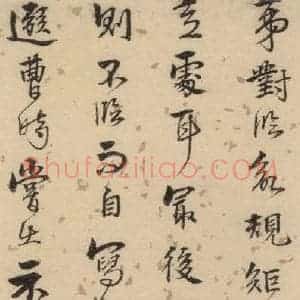 對臨規矩
處耳最後
則不臨而自寫
曹時嘗出示
shufaziliao.COM